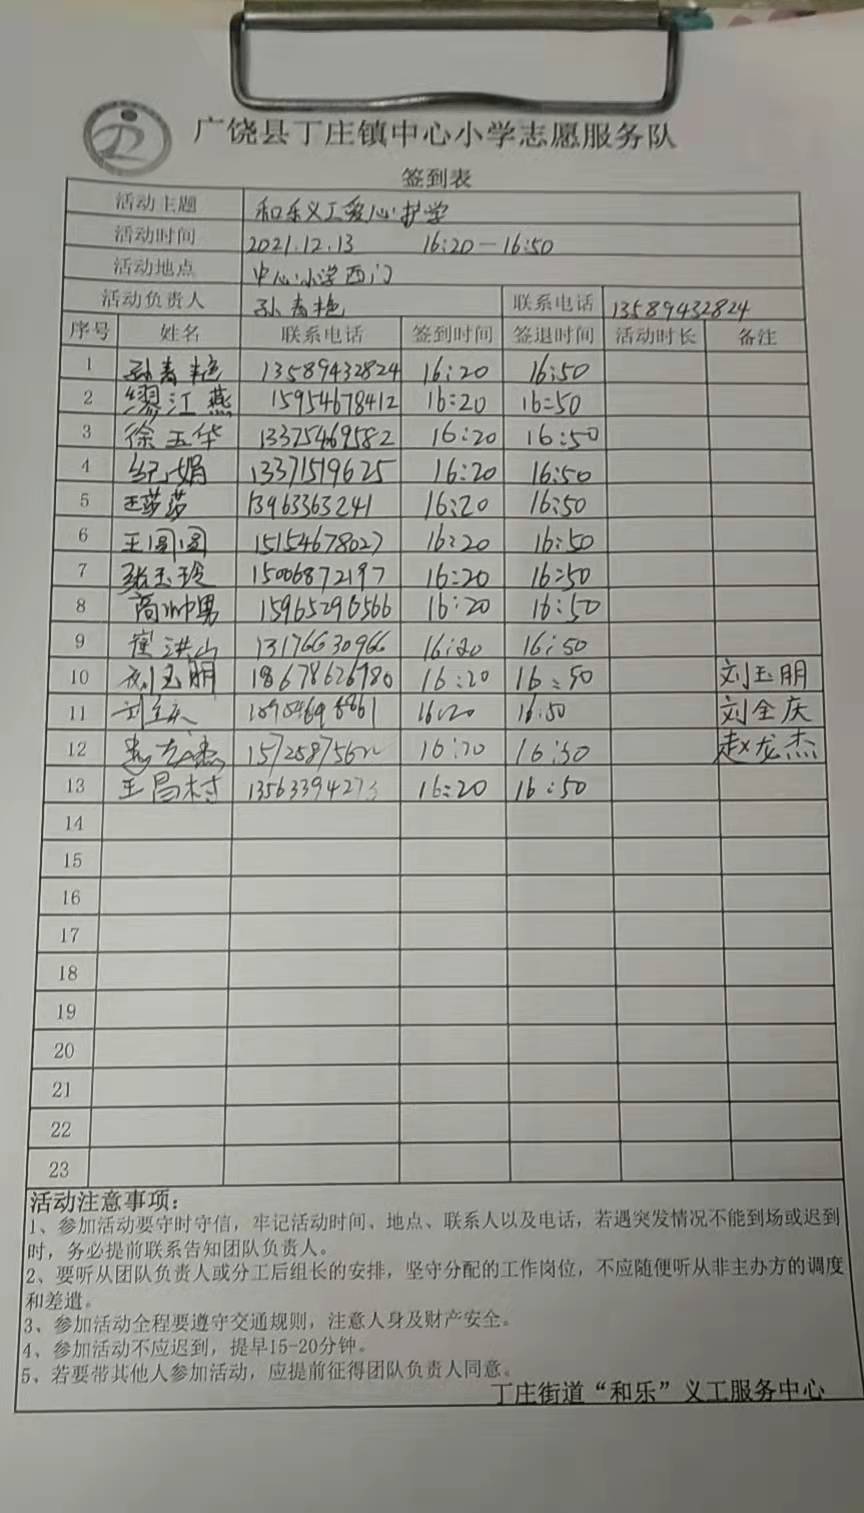 广饶县丁庄镇中心小学志愿服务队
签到表
活动主题 和乐义工爱心护学
活动时间 2021.12.13 16:20-16:50
活动地点 中心小学西门
活动负责人 孙青艳 联系电话 13589432824
序号 姓名 联系电话 签到时间 签退时间 活动时长 备注
1 孙青艳 13589432824 16:20 16:50
2 缪江燕 15954678412 16:20 16:50
3 徐玉华 13375469582 16:20 16:50
4 纪娟 13371519625 16:20 16:50
5 王莎莎 13963363241 16:20 16:50
6 王圆圆 15154678027 16:20 16:50
7 张玉玲 15006872197 16:20 16:50
8 高帅男 15965296566 16:20 16:50
9 崔洪山 13176630966 16:20 16:50
10 刘玉朋 18678626980 16:20 16:50 刘玉朋
11 刘全庆 16:20 16:50 刘全庆
12 赵龙杰 16:20 16:50 赵龙杰
13 王昌村 16:20 16:50
14
15
16
17
18
19
20
21
22
23
活动注意事项:
1、参加活动要守时守信，牢记活动时间、地点、联系人以及电话，若遇突发情况不能到场或迟到
时，务必提前联系告知团队负责人。
2、要听从团队负责人或分工后组长的安排，坚守分配的工作岗位，不应随便听从非主办方的调度
和差遣。
3、参加活动全程要遵守交通规则，注意人身及财产安全。
4、参加活动不应迟到，提早15-20分钟。
5、若要带其他人参加活动，应提前征得团队负责人同意。
丁庄街道“和乐”义工服务中心